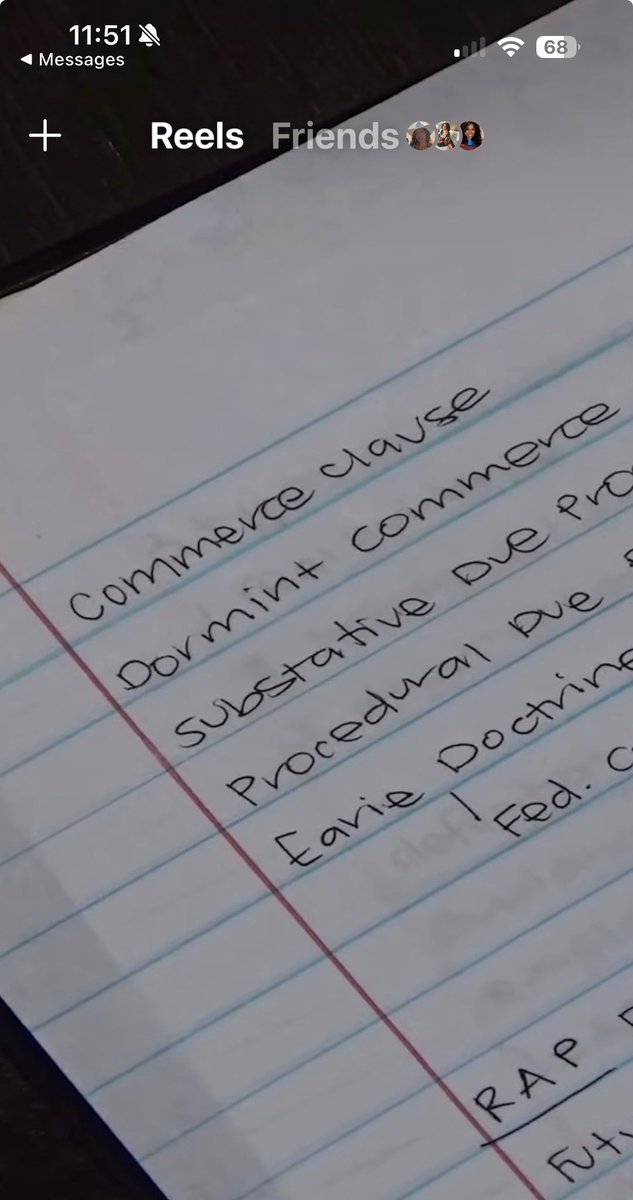 11:51
68
Messages
Reels Friends
Commerce clause
Dormint commerce
Substative Due Pro
Procedural Due
Earie Doctrine
Fed. C
RAP
Futu